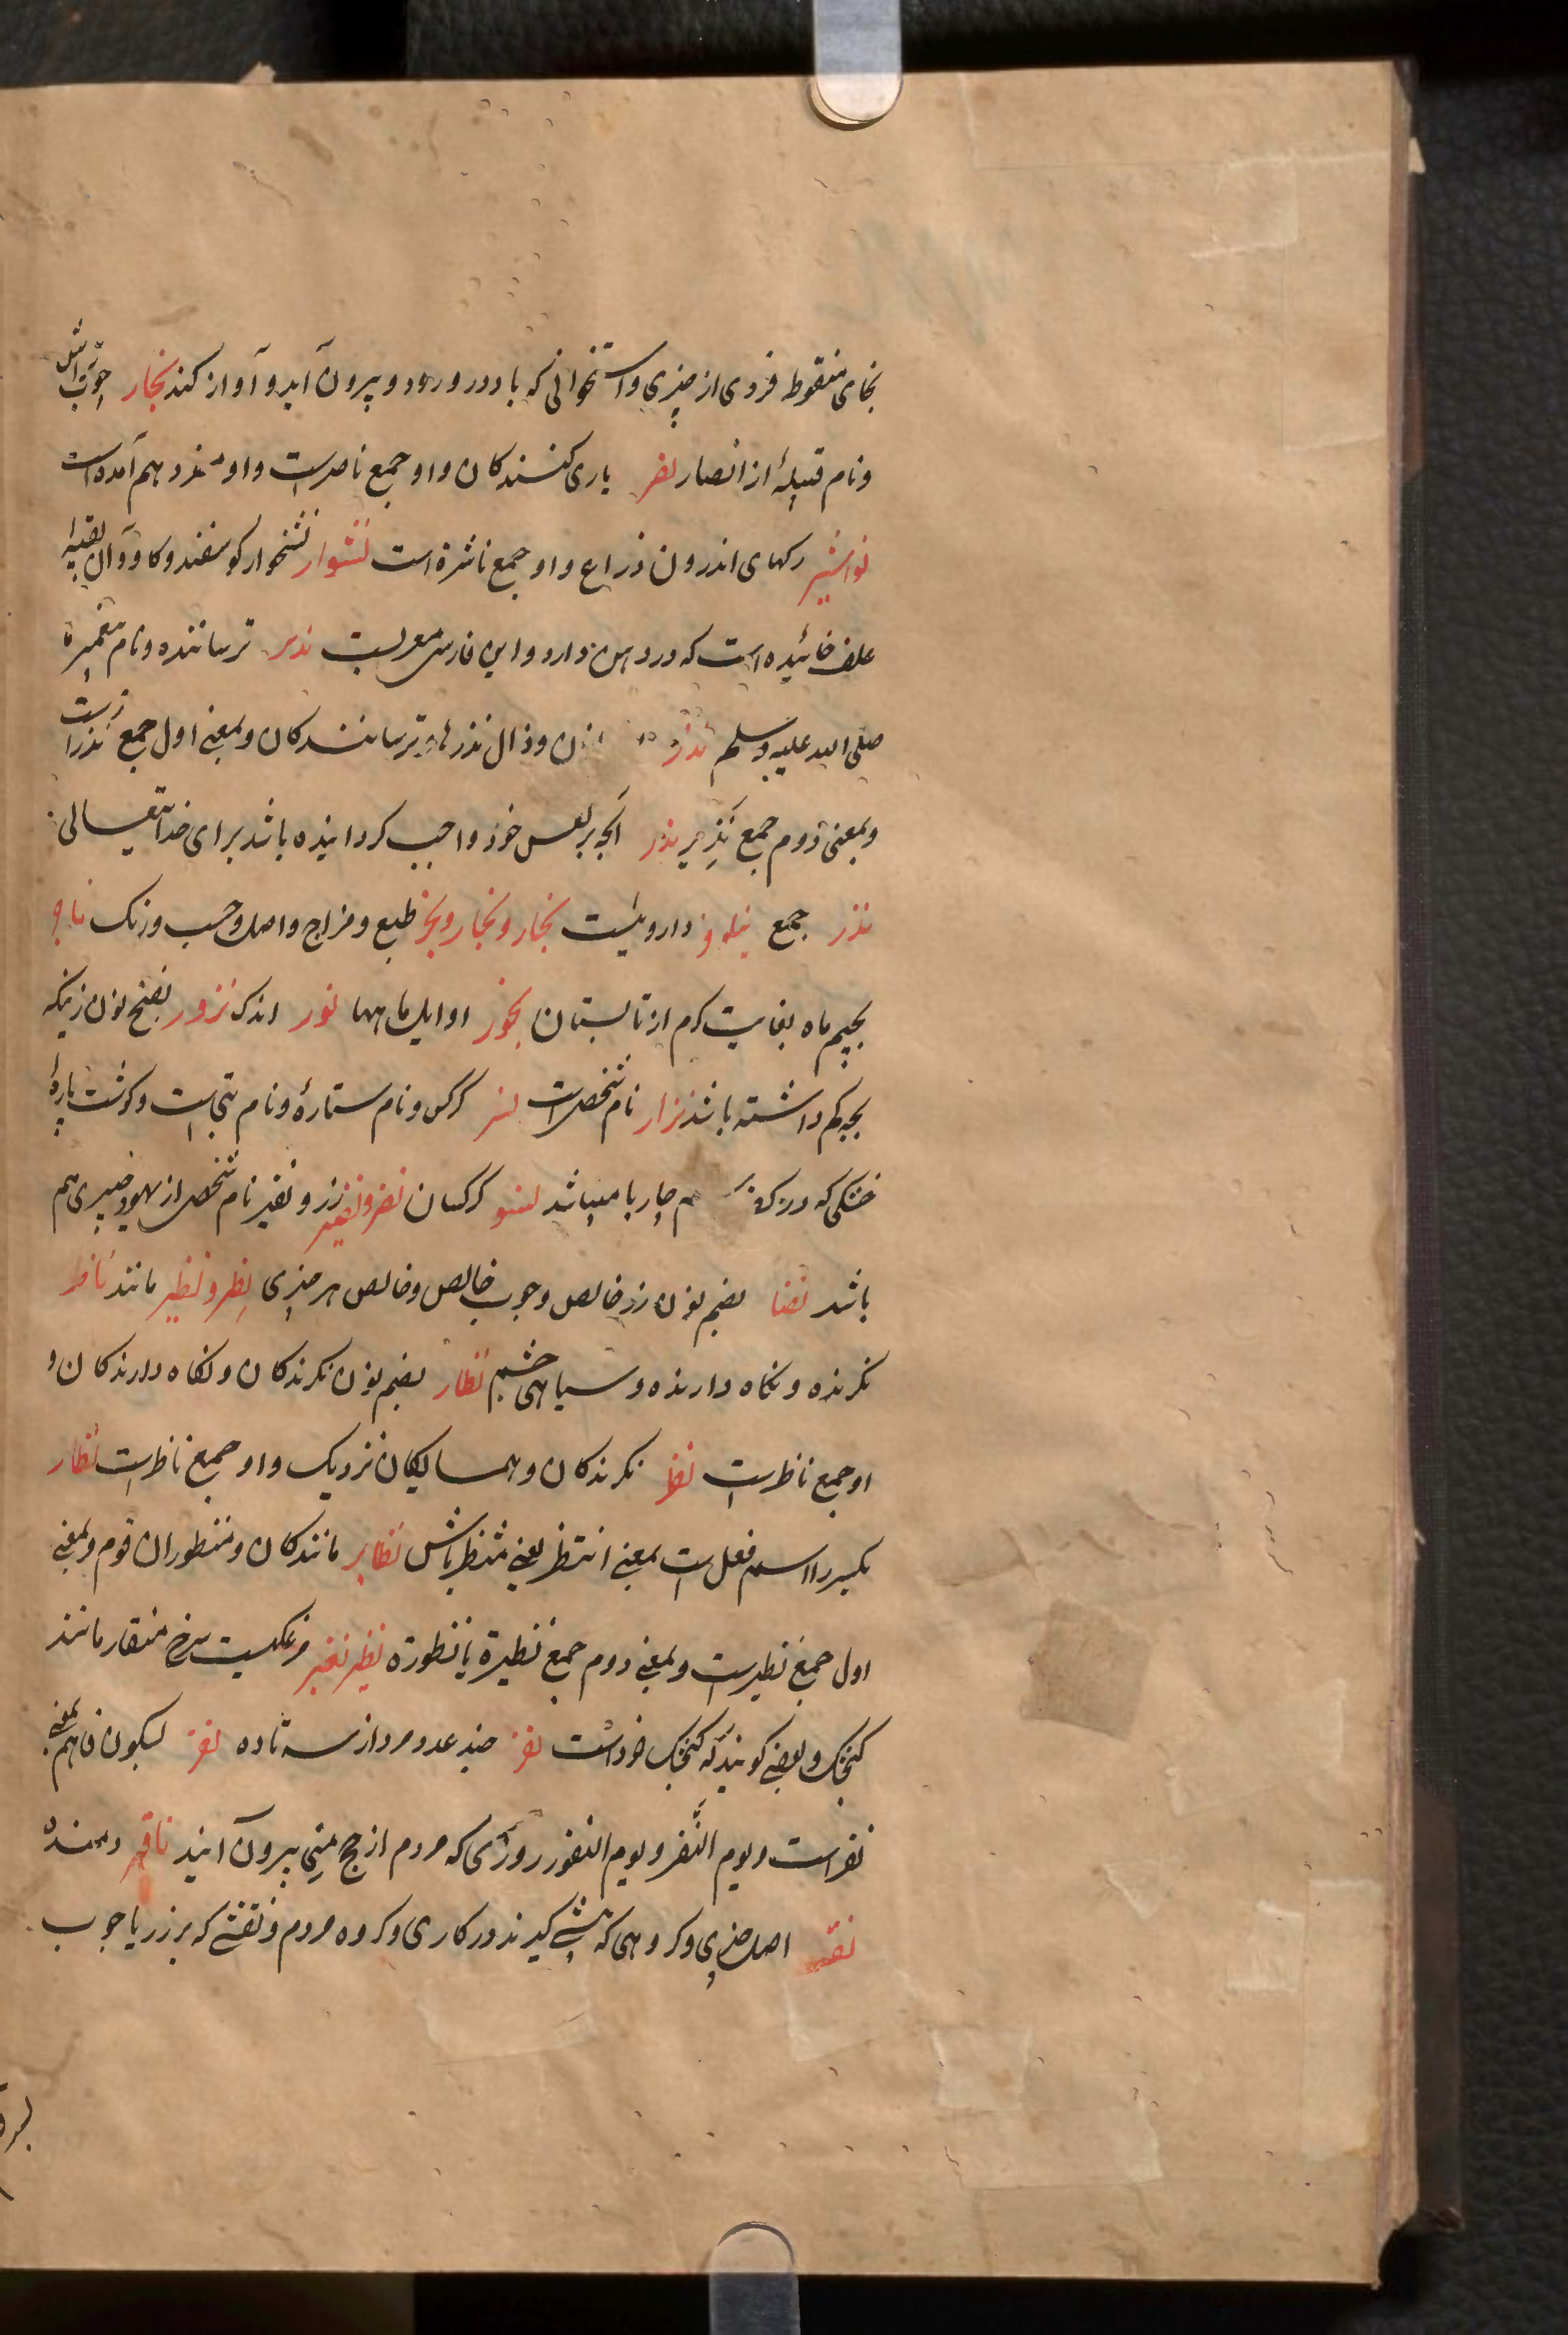 بخای منقوطه فروی از چیزی و استخوانی که باد درو رود و بیرون آید و آواز کند نجار چوب‌تراش
و نام قبیلهٔ از انصار نصر یاری کنندکان و او جمع ناصرست و او مفرد هم آمده است
نواشیر رکهای اندرون ذراع و او جمع ناشرة است نشوار نشخوار کوسفند و کاو و آن بقیه
علف خائیده است که در دهن دارد و این فارسی معربست نذیر ترساننده و نام پیغمبر ما
صلی الله علیه وسلم نذر و ذال نذرها و ترسانندکان و بمعنی اول جمع نذر است
و بمعنی دوم جمع نذیر نذر آنچه بر نفس خود واجب کردانیده باشد برای خدایتعالی
نذر جمع نیلوفر داروئیست نجار و نجار و نجر طبع و مزاج و اصل و حسب و رنک ناجر
بجیم ماه بغایت کرم از تابستان نحور اوایل ماهها نزر اندک نزور بفتح نون زنیکه
بچه کم داشته باشد نزار نام شخص است نسر کرکس و نام ستارهٔ و نام بتی است و کوشت پارهٔ
خشکی که در سم چارپا میباشد نسور کرکسان نضر و نضیر زر و نضیر نام شخصی از یهود خیبری هم
باشد نضار بضم نون زر خالص و چوب خالص و خالص هر چیزی نظر و نظیر مانند ناظر
نکرنده و نکاه دارنده و سیاهی چشم نظار بضم نون نکرندکان و نکاه دارندکان و
او جمع ناظرست نظر نکرندکان و همسایکان نزدیک و او جمع ناظرست نظار
بکسر را اسم فعل است بمعنی انتظر یعنی منتظر باش نظایر مانندکان و منظوران قوم و بمعنی
اول جمع نظیرست و بمعنی دوم جمع نظیرة یا نظورة نظیر نغیر مرغکیست سرخ منقار مانند
کنجشک و بعضی کویند که کنجشک خرد است نفر چند عدد مرد از سه تا ده نفر بسکون فا هم بمعنی
نفرست و یوم النَّفر و یوم النفور روزی که مردم از حج منی بیرون آیند ناقر دمنده
نقیر اصل چیزی و کروهی که پیشی کیرند در کاری و کروه مردم و نقشی که بر زر یا چوب